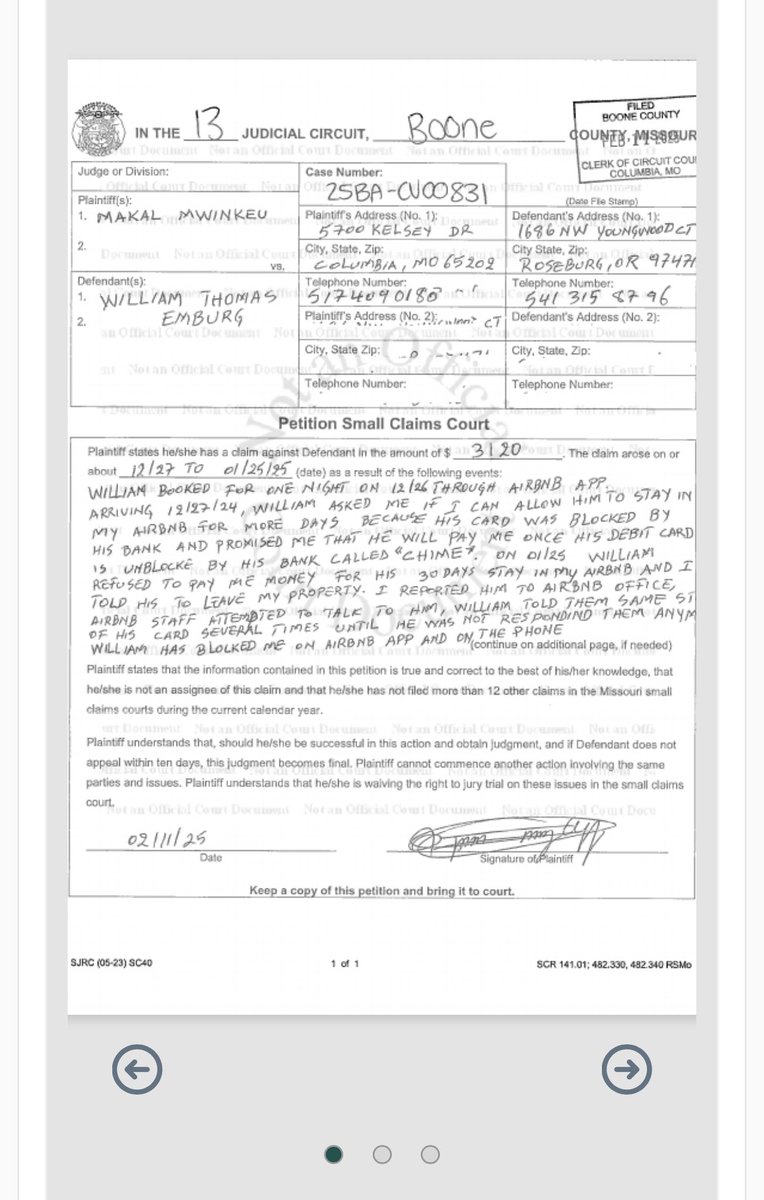 IN THE 13 JUDICIAL CIRCUIT, Boone COUNTY, MISSOUR
FILED
BOONE COUNTY
FEB 11 2025
CLERK OF CIRCUIT COU
COLUMBIA, MO
(Date File Stamp)
Judge or Division:
Case Number:
25BA-CV00831
Plaintiff(s):
1. MAKAL MWINKEU
2.
vs.
Plaintiff's Address (No. 1):
5700 KELSEY DR
City, State, Zip:
COLUMBIA, MO 65202
Telephone Number:
5174090180
Defendant's Address (No. 1):
1686 NW YOUNGWOOD CT
City State, Zip:
ROSEBURG, OR 9747
Telephone Number:
541 315 8796
Defendant(s):
1. WILLIAM THOMAS
EMBURG
2.
Plaintiff's Address (No. 2):
CT
City, State Zip:
Telephone Number:
Defendant's Address (No. 2):
City, State, Zip:
Telephone Number:
Not an Official Court Document
Petition Small Claims Court
Plaintiff states he/she has a claim against Defendant in the amount of $ 3120. The claim arose on or
about 12/27 TO 01/25/25 (date) as a result of the following events:
WILLIAM BOOKED FOR ONE NIGHT ON 12/26 THROUGH AIRBNB APP.
ARRIVING 12/27/24, WILLIAM ASKED ME IF I CAN ALLOW HIM TO STAY IN
MY AIRBNB FOR MORE DAYS BECAUSE HIS CARD WAS BLOCKED BY
HIS BANK AND PROMISED ME THAT HE WILL PAY ME ONCE HIS DEBIT CARD
IS UNBLOCKE BY HIS BANK CALLED "CHIME". ON 01/25 WILLIAM
REFUSED TO PAY ME MONEY FOR HIS 30 DAYS STAY IN MY AIRBNB AND I
TOLD HIS TO LEAVE MY PROPERTY. I REPORTED HIM TO AIRBNB OFFICE,
AIRBNB STAFF ATTEMPTED TO TALK TO HIM, WILLIAM TOLD THEM SAME ST
OF HIS CARD SEVERAL TIMES UNTIL HE WAS NOT RESPONDIND THEM ANYM
WILLIAM HAS BLOCKED ME ON AIRBNB APP AND ON THE PHONE
(continue on additional page, if needed)
Plaintiff states that the information contained in this petition is true and correct to the best of his/her knowledge, that
he/she is not an assignee of this claim and that he/she has not filed more than 12 other claims in the Missouri small
claims courts during the current calendar year.
Plaintiff understands that, should he/she be successful in this action and obtain judgment, and if Defendant does not
appeal within ten days, this judgment becomes final. Plaintiff cannot commence another action involving the same
parties and issues. Plaintiff understands that he/she is waiving the right to jury trial on these issues in the small claims
court.
02/11/25
Date
Signature of Plaintiff
Keep a copy of this petition and bring it to court.
SJRC (05-23) SC40
1 of 1
SCR 141.01; 482.330, 482.340 RSMo